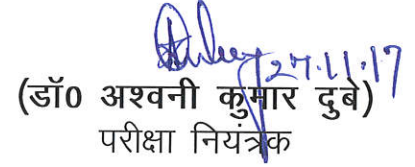 27.11.17
(डॉ0 अश्वनी कुमार दुबे)
परीक्षा नियंत्रक